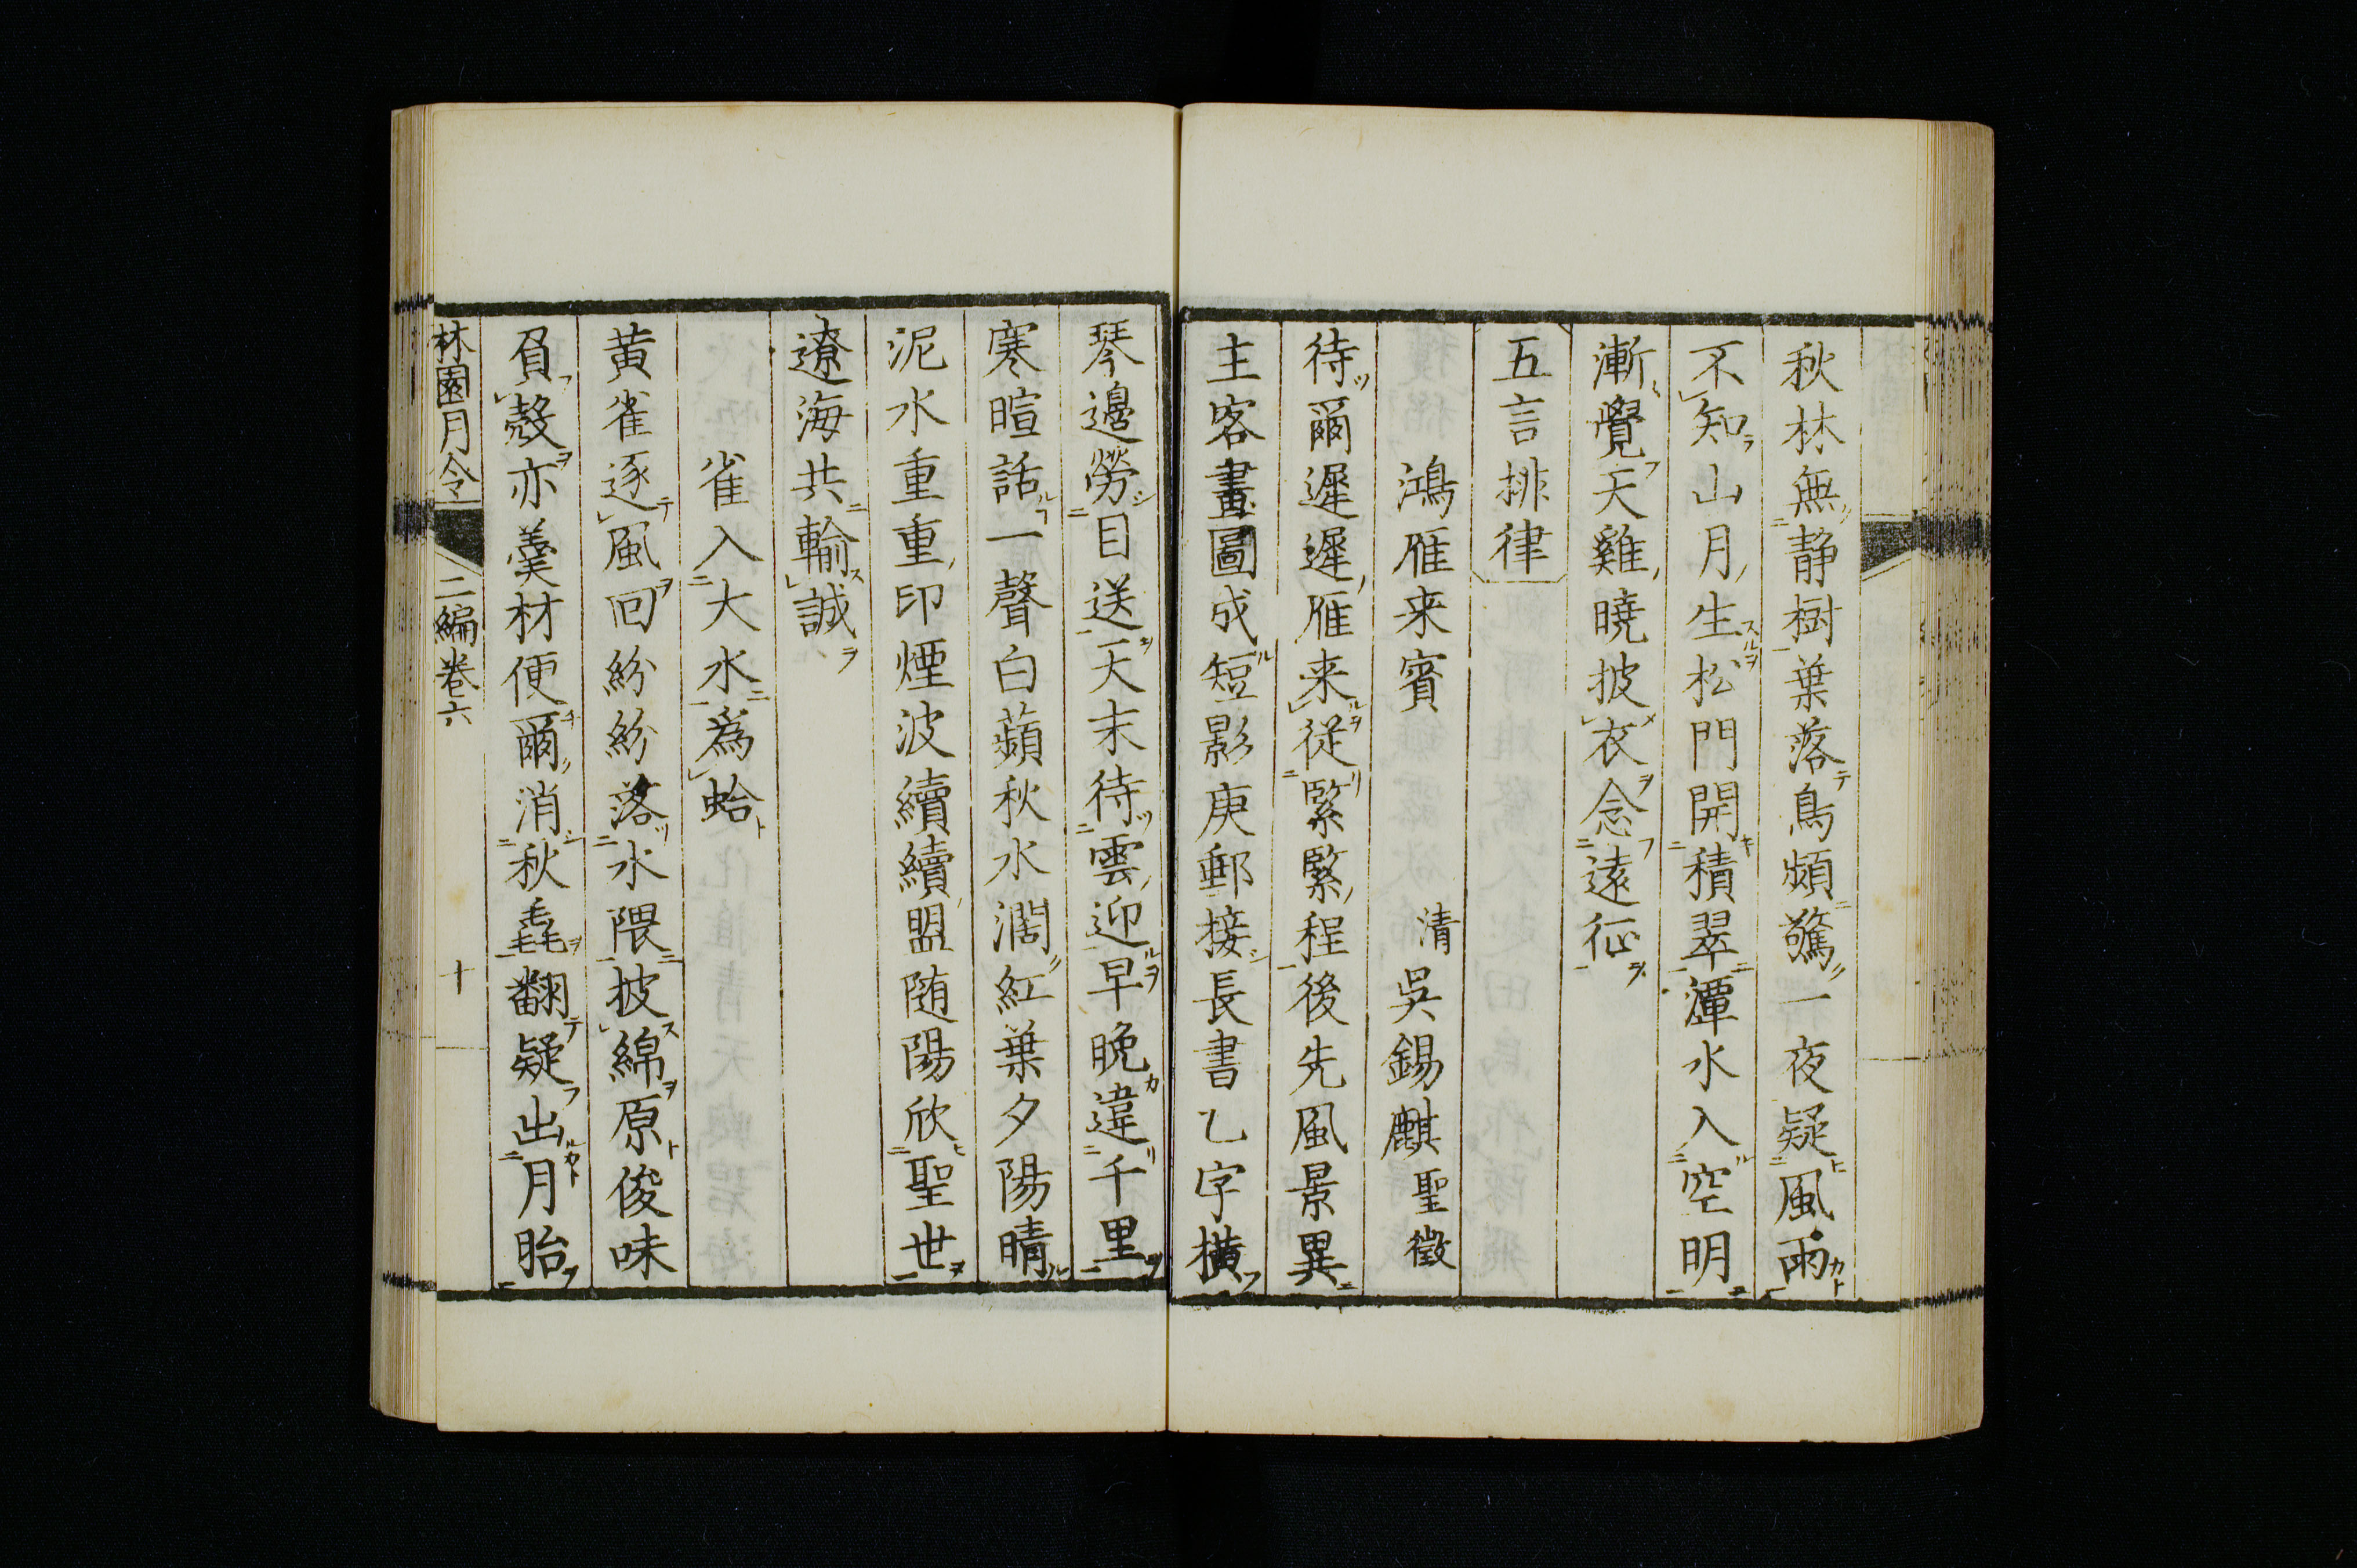 秋林無静樹葉落鳥頻驚一夜疑風雨
不知山月生松門開積翠潭水入空明
漸覺天雞曉披衣念遠征
五言排律
鴻雁来賓
清吳錫麒聖徵
待爾遲遲雁来從緊緊程後先風景異
主客畫圖成短影庚郵接長書乙字橫
琴邊勞目送天末待雲迎早晚違千里
寒暄話一聲白蘋秋水濶紅葉夕陽晴
泥水重重印煙波續續盟随陽欣聖世
遼海共輸誠
雀入大水為蛤
黄雀逐風回紛紛落水隈披綿原俊味
負殼亦羹材便爾消秋毳翻疑出月胎
林園月令
二編卷六
十